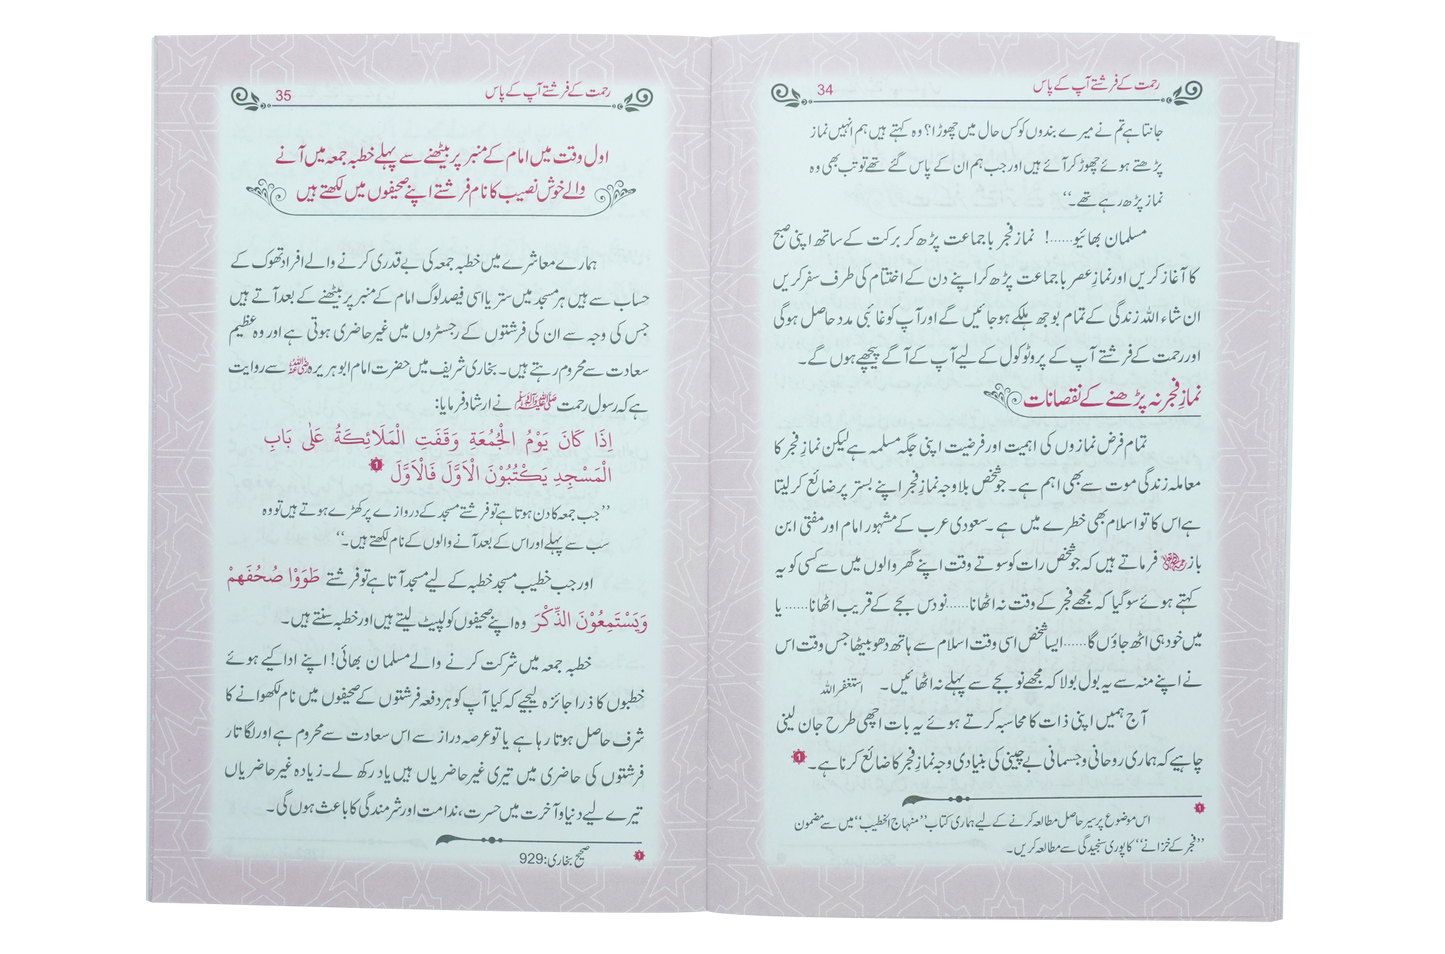 رحمت کے فرشتے آپ کے پاس
34
جانتا ہے تم نے میرے بندوں کو کس حال میں چھوڑا؟ وہ کہتے ہیں ہم انہیں نماز
پڑھتے ہوئے چھوڑ کر آئے ہیں اور جب ہم ان کے پاس گئے تھے تو تب بھی وہ
نماز پڑھ رہے تھے۔‘‘
مسلمان بھائیو......! نماز فجر با جماعت پڑھ کر برکت کے ساتھ اپنی صبح
کا آغاز کریں اور نمازِ عصر با جماعت پڑھ کر اپنے دن کے اختتام کی طرف سفر کریں
ان شاء اللہ زندگی کے تمام بوجھ ہلکے ہو جائیں گے اور آپ کو غائبی مدد حاصل ہوگی
اور رحمت کے فرشتے آپ کے پروٹوکول کے لیے آپ کے آگے پیچھے ہوں گے۔
نمازِ فجر نہ پڑھنے کے نقصانات
تمام فرض نمازوں کی اہمیت اور فرضیت اپنی جگہ مسلمہ ہے لیکن نمازِ فجر کا
معاملہ زندگی موت سے بھی اہم ہے۔ جو شخص بلاوجہ نمازِ فجر اپنے بستر پر ضائع کر لیتا
ہے اس کا تو اسلام بھی خطرے میں ہے۔ سعودی عرب کے مشہور امام اور مفتی ابن
باز رحمہ اللہ فرماتے ہیں کہ جو شخص رات کو سوتے وقت اپنے گھر والوں میں سے کسی کو یہ
کہتے ہوئے سو گیا کہ مجھے فجر کے وقت نہ اٹھانا......نو دس بجے کے قریب اٹھانا...... یا
میں خود ہی اٹھ جاؤں گا......ایسا شخص اسی وقت اسلام سے ہاتھ دھو بیٹھا جس وقت اس
نے اپنے منہ سے یہ بول بولا کہ مجھے نو بجے سے پہلے نہ اٹھائیں۔ استغفر اللہ
آج ہمیں اپنی ذات کا محاسبہ کرتے ہوئے یہ بات اچھی طرح جان لینی
چاہیے کہ ہماری روحانی و جسمانی بے چینی کی بنیادی وجہ نمازِ فجر کا ضائع کرنا ہے۔ 1
1 اس موضوع پر سیر حاصل مطالعہ کرنے کے لیے ہماری کتاب ’’منہاج الخطیب‘‘ میں سے مضمون
’’فجر کے خزانے‘‘ کا پوری سنجیدگی سے مطالعہ کریں۔
رحمت کے فرشتے آپ کے پاس
35
اول وقت میں امام کے منبر پر بیٹھنے سے پہلے خطبہ جمعہ میں آنے
والے خوش نصیب کا نام فرشتے اپنے صحیفوں میں لکھتے ہیں
ہمارے معاشرے میں خطبہ جمعہ کی بے قدری کرنے والے افراد تھوک کے
حساب سے ہیں ہر مسجد میں ستر یا اسی فیصد لوگ امام کے منبر پر بیٹھنے کے بعد آتے ہیں
جس کی وجہ سے ان کی فرشتوں کے رجسٹروں میں غیر حاضری ہوتی ہے اور وہ عظیم
سعادت سے محروم رہتے ہیں۔ بخاری شریف میں حضرت امام ابو ہریرہ رضی اللہ عنہ سے روایت
ہے کہ رسول رحمت صلی اللہ علیہ وسلم نے ارشاد فرمایا:
اِذَا كَانَ يَوْمُ الْجُمُعَةِ وَقَفَتِ الْمَلَائِكَةُ عَلٰى بَابِ
الْمَسْجِدِ يَكْتُبُوْنَ الْاَوَّلَ فَالْاَوَّلَ 1
’’جب جمعہ کا دن ہوتا ہے تو فرشتے مسجد کے دروازے پر کھڑے ہوتے ہیں تو وہ
سب سے پہلے اور اس کے بعد آنے والوں کے نام لکھتے ہیں۔‘‘
اور جب خطیب مسجد خطبہ کے لیے مسجد آتا ہے تو فرشتے طَوَوْا صُحُفَهمْ
وَيَسْتَمِعُوْنَ الذِّكْرَ وہ اپنے صحیفوں کو لپیٹ لیتے ہیں اور خطبہ سنتے ہیں۔
خطبہ جمعہ میں شرکت کرنے والے مسلمان بھائی! اپنے ادا کیے ہوئے
خطبوں کا ذرا جائزہ لیجیے کہ کیا آپ کو ہر دفعہ فرشتوں کے صحیفوں میں نام لکھوانے کا
شرف حاصل ہوتا رہا ہے یا تو عرصہ دراز سے اس سعادت سے محروم ہے اور لگاتار
فرشتوں کی حاضری میں تیری غیر حاضریاں ہیں یاد رکھ لے۔ زیادہ غیر حاضریاں
تیرے لیے دنیا و آخرت میں حسرت، ندامت اور شرمندگی کا باعث ہوں گی۔
1 صحیح بخاری: 929